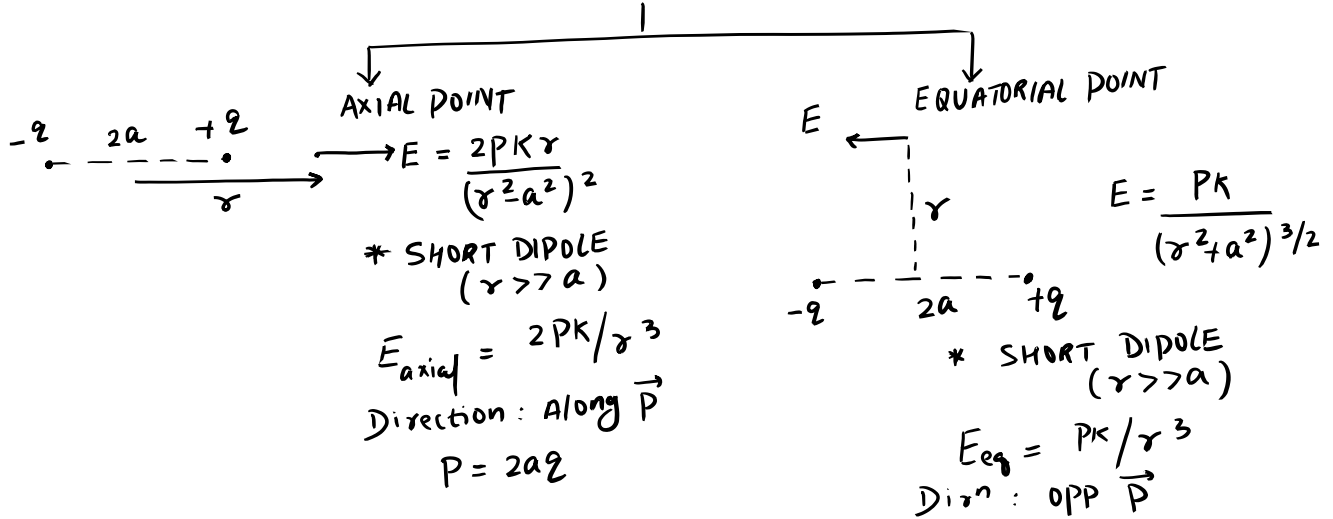 AXIAL POINT
-q 2a +q
r
E = 2PKr / (r²-a²)²
* SHORT DIPOLE
(r>>a)
E axial = 2PK/r³
Direction: Along P⃗
P = 2aq
EQUATORIAL POINT
E
r
E = PK / (r²+a²)^3/2
-q 2a +q
* SHORT DIPOLE
(r>>a)
Eeq = PK/r³
Dirⁿ: OPP P⃗